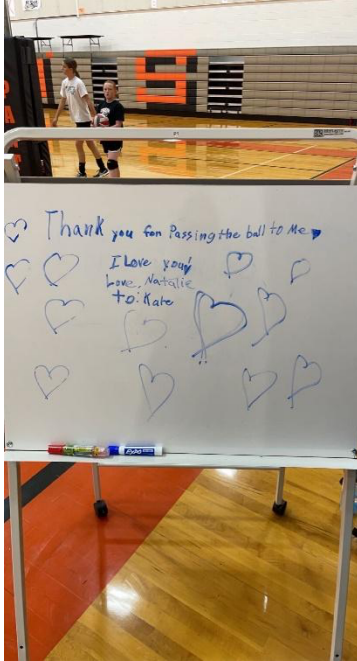 Thank you for Passing the ball to Me
I Love you!
Love, Natalie
to: Kate
EXPO